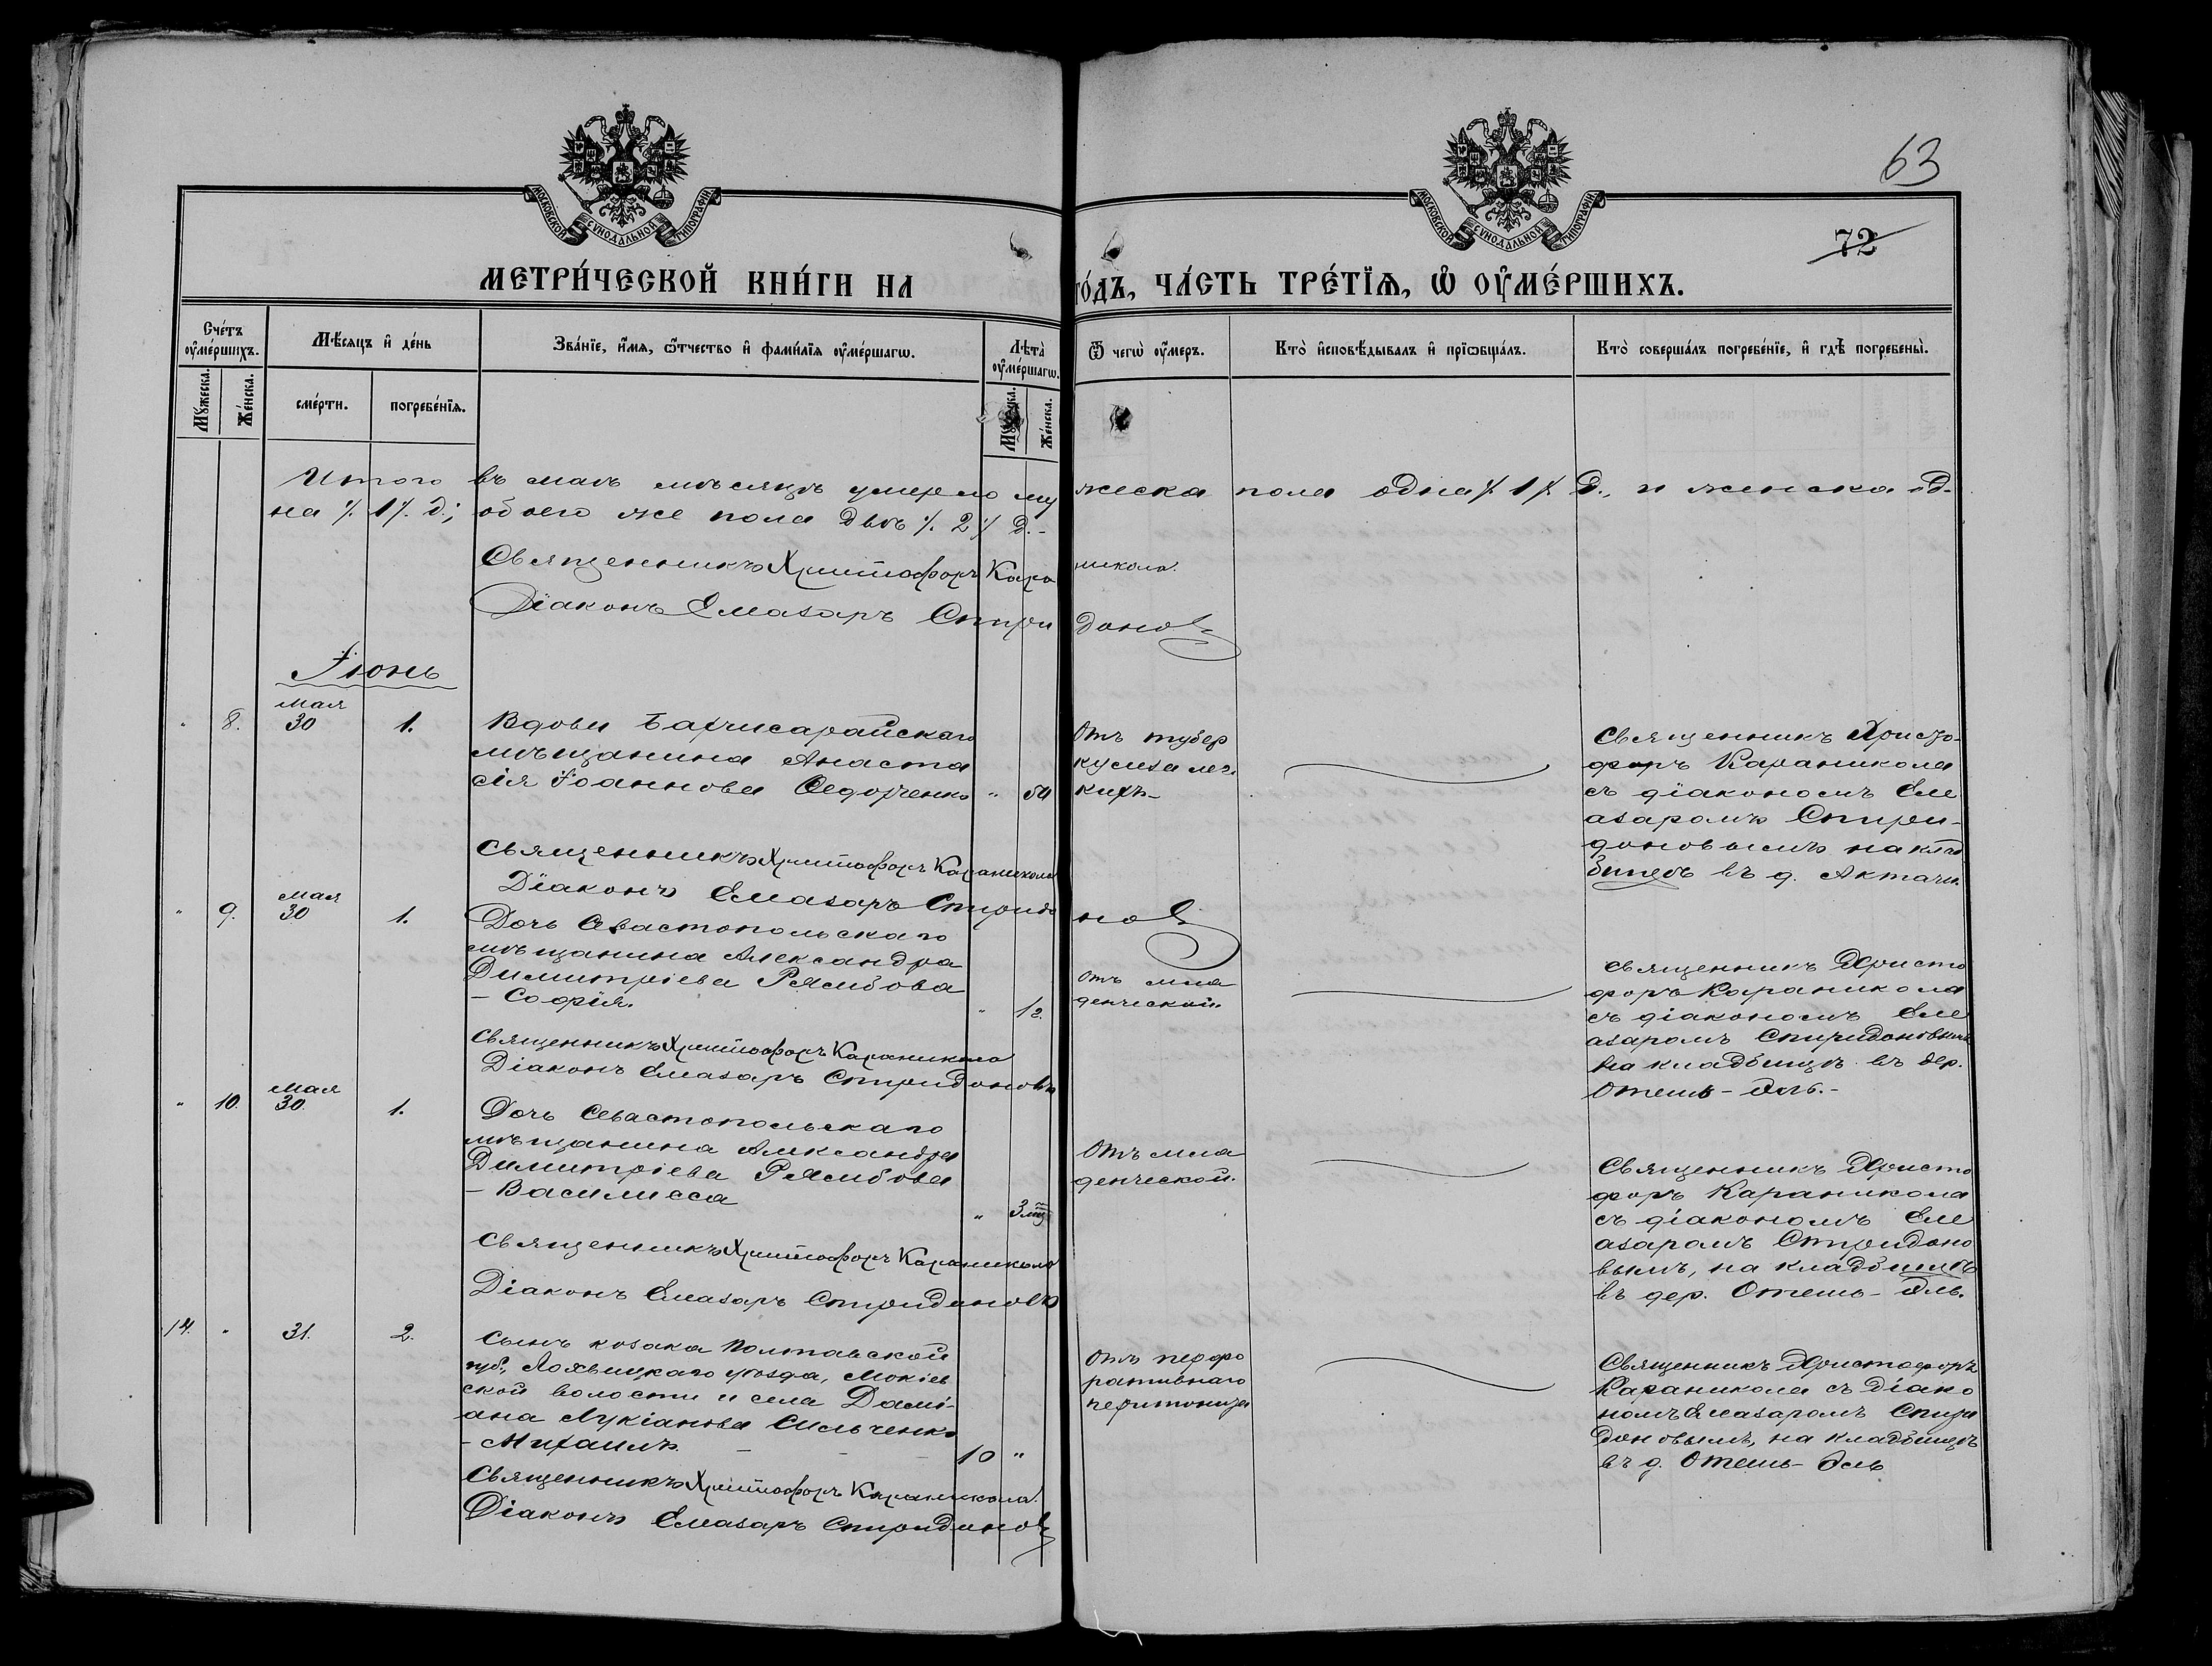 63
72
МОСКОВСКОЙ СУНОДАЛЬНОЙ ТИПОГРАФІИ
МОСКОВСКОЙ СУНОДАЛЬНОЙ ТИПОГРАФІИ
МЕТРИ́ЧЕСКОЙ КНИ́ГИ НА
ГО́ДЪ, ЧА́СТЬ ТРЕ́ТЇѦ, Ѡ ОУ҆МЕ́РШИХЪ.
Сче́тъ оу҆ме́ршихъ.
Мѣ́сяцъ и҆ де́нь
Зва́нїе, и҆́мя, ѻ҆́тчество и҆ фами́лїя оу҆ме́ршагѡ.
Лѣ́та оу҆ме́ршагѡ.
Ѿ чегѡ̀ оу҆́меръ.
Кто̀ и҆сповѣ́дывалъ и҆ прїѻбща́лъ.
Кто̀ соверша́лъ погребе́нїе, и҆ гдѣ̀ погребены̀.
Мꙋ́жеска.
Же́нска.
сме́рти.
погребе́нїя.
Же́нска.
Итого въ маѣ мѣсяцѣ умерло мужеска пола одна ٪ 1 ٪ д., и женска од-
на ٪ 1 ٪ д.; обоего же пола двѣ ٪ 2 ٪ д.-
Священникъ Христофоръ Караникола.
Діаконъ Елеазаръ Спиридоновъ
Іюнь
" 8. мая 30 1.
Вдова Бахчисарайскаго
мѣщанина Анаста
сія Іоаннова Федорченко " 54
Отъ тубер
кулеза лег
кихъ-
Священникъ Христо-
форъ Караникола
съ діакономъ Еле
азаромъ Спири-
доновымъ на клад
бищѣ въ д. Актачи.
Священникъ Христофоръ Караникола
Діаконъ Елеазаръ Спиридоновъ
" 9. мая 30 1.
Дочь Севастопольскаго
мѣщанина Александра
Димитріева
- Софія. " 12.
Отъ мла
денческой.
Священникъ Христо
форъ Караникола
съ діакономъ Еле
азаромъ Спиридоновымъ
на кладбищѣ въ дер.
Отешь-Эль.-
Священникъ Христофоръ Караникола
Діаконъ Елеазаръ Спиридоновъ
" 10. мая 30. 1.
Дочь Севастопольскаго
мѣщанина Александра
Димитріева
- Василисса " 3 мц
Отъ мла
денческой.
Священникъ Христо
форъ Караникола
съ діакономъ Еле
азаромъ Спиридоно
вымъ, на кладбищѣ
въ дер. Отешь-Эль.
Священникъ Христофоръ Караникола
Діаконъ Елеазаръ Спиридоновъ
14. " 31. 2.
Сынъ козака Полтавской
губ., Лохвицкаго уѣзда, Мокіев
ской волости и села Дамі-
ана Лукіанова Ильченко
- Михаилъ. 10 "
Отъ перфо
ративнаго
перитонита
Священникъ Христофоръ
Караникола съ діако
номъ Елеазаромъ Спири
доновымъ, на кладбищѣ
въ д. Отешь-Эль
Священникъ Христофоръ Караникола.
Діаконъ Елеазаръ Спиридоновъ